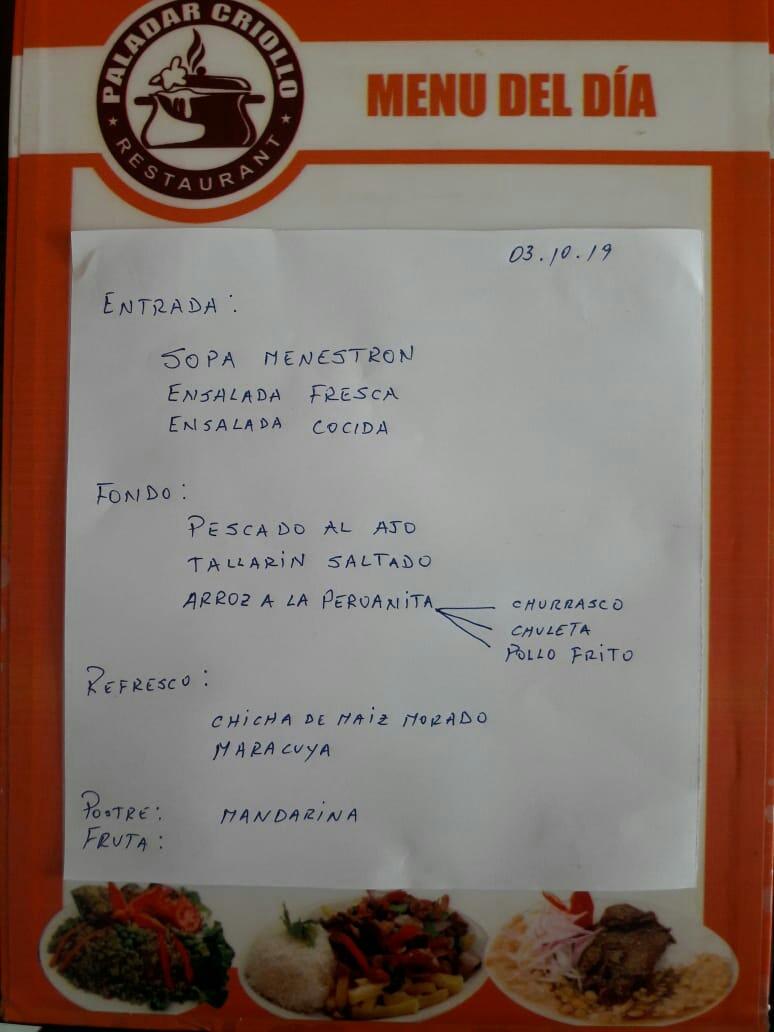 PALADAR CRIOLLO
★ RESTAURANT ★
MENU DEL DÍA
03.10.19
ENTRADA:
SOPA MENESTRON
ENSALADA FRESCA
ENSALADA COCIDA
FONDO:
PESCADO AL AJO
TALLARIN SALTADO
ARROZ A LA PERUANITA
CHURRASCO
CHULETA
POLLO FRITO
REFRESCO:
CHICHA DE MAIZ MORADO
MARACUYA
POSTRE: MANDARINA
FRUTA: